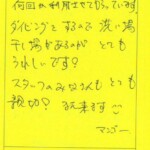 何回か利用させてもらっています。
ダイビングをするので洗い場
干し場があるのがとても
うれしいです?
スタッフのみなさんもとても
親切? また来ます
マンゴー